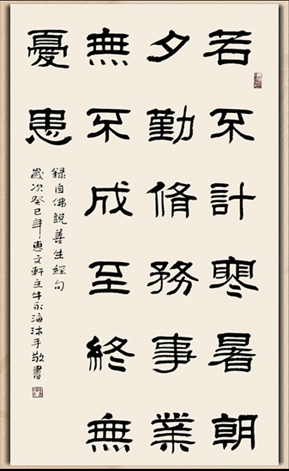 若不計寒暑朝
夕勤脩務事業
無不成至終無
憂患
録自佛説善生經句
歲次癸巳年惠文軒主牛永海沐手敬書